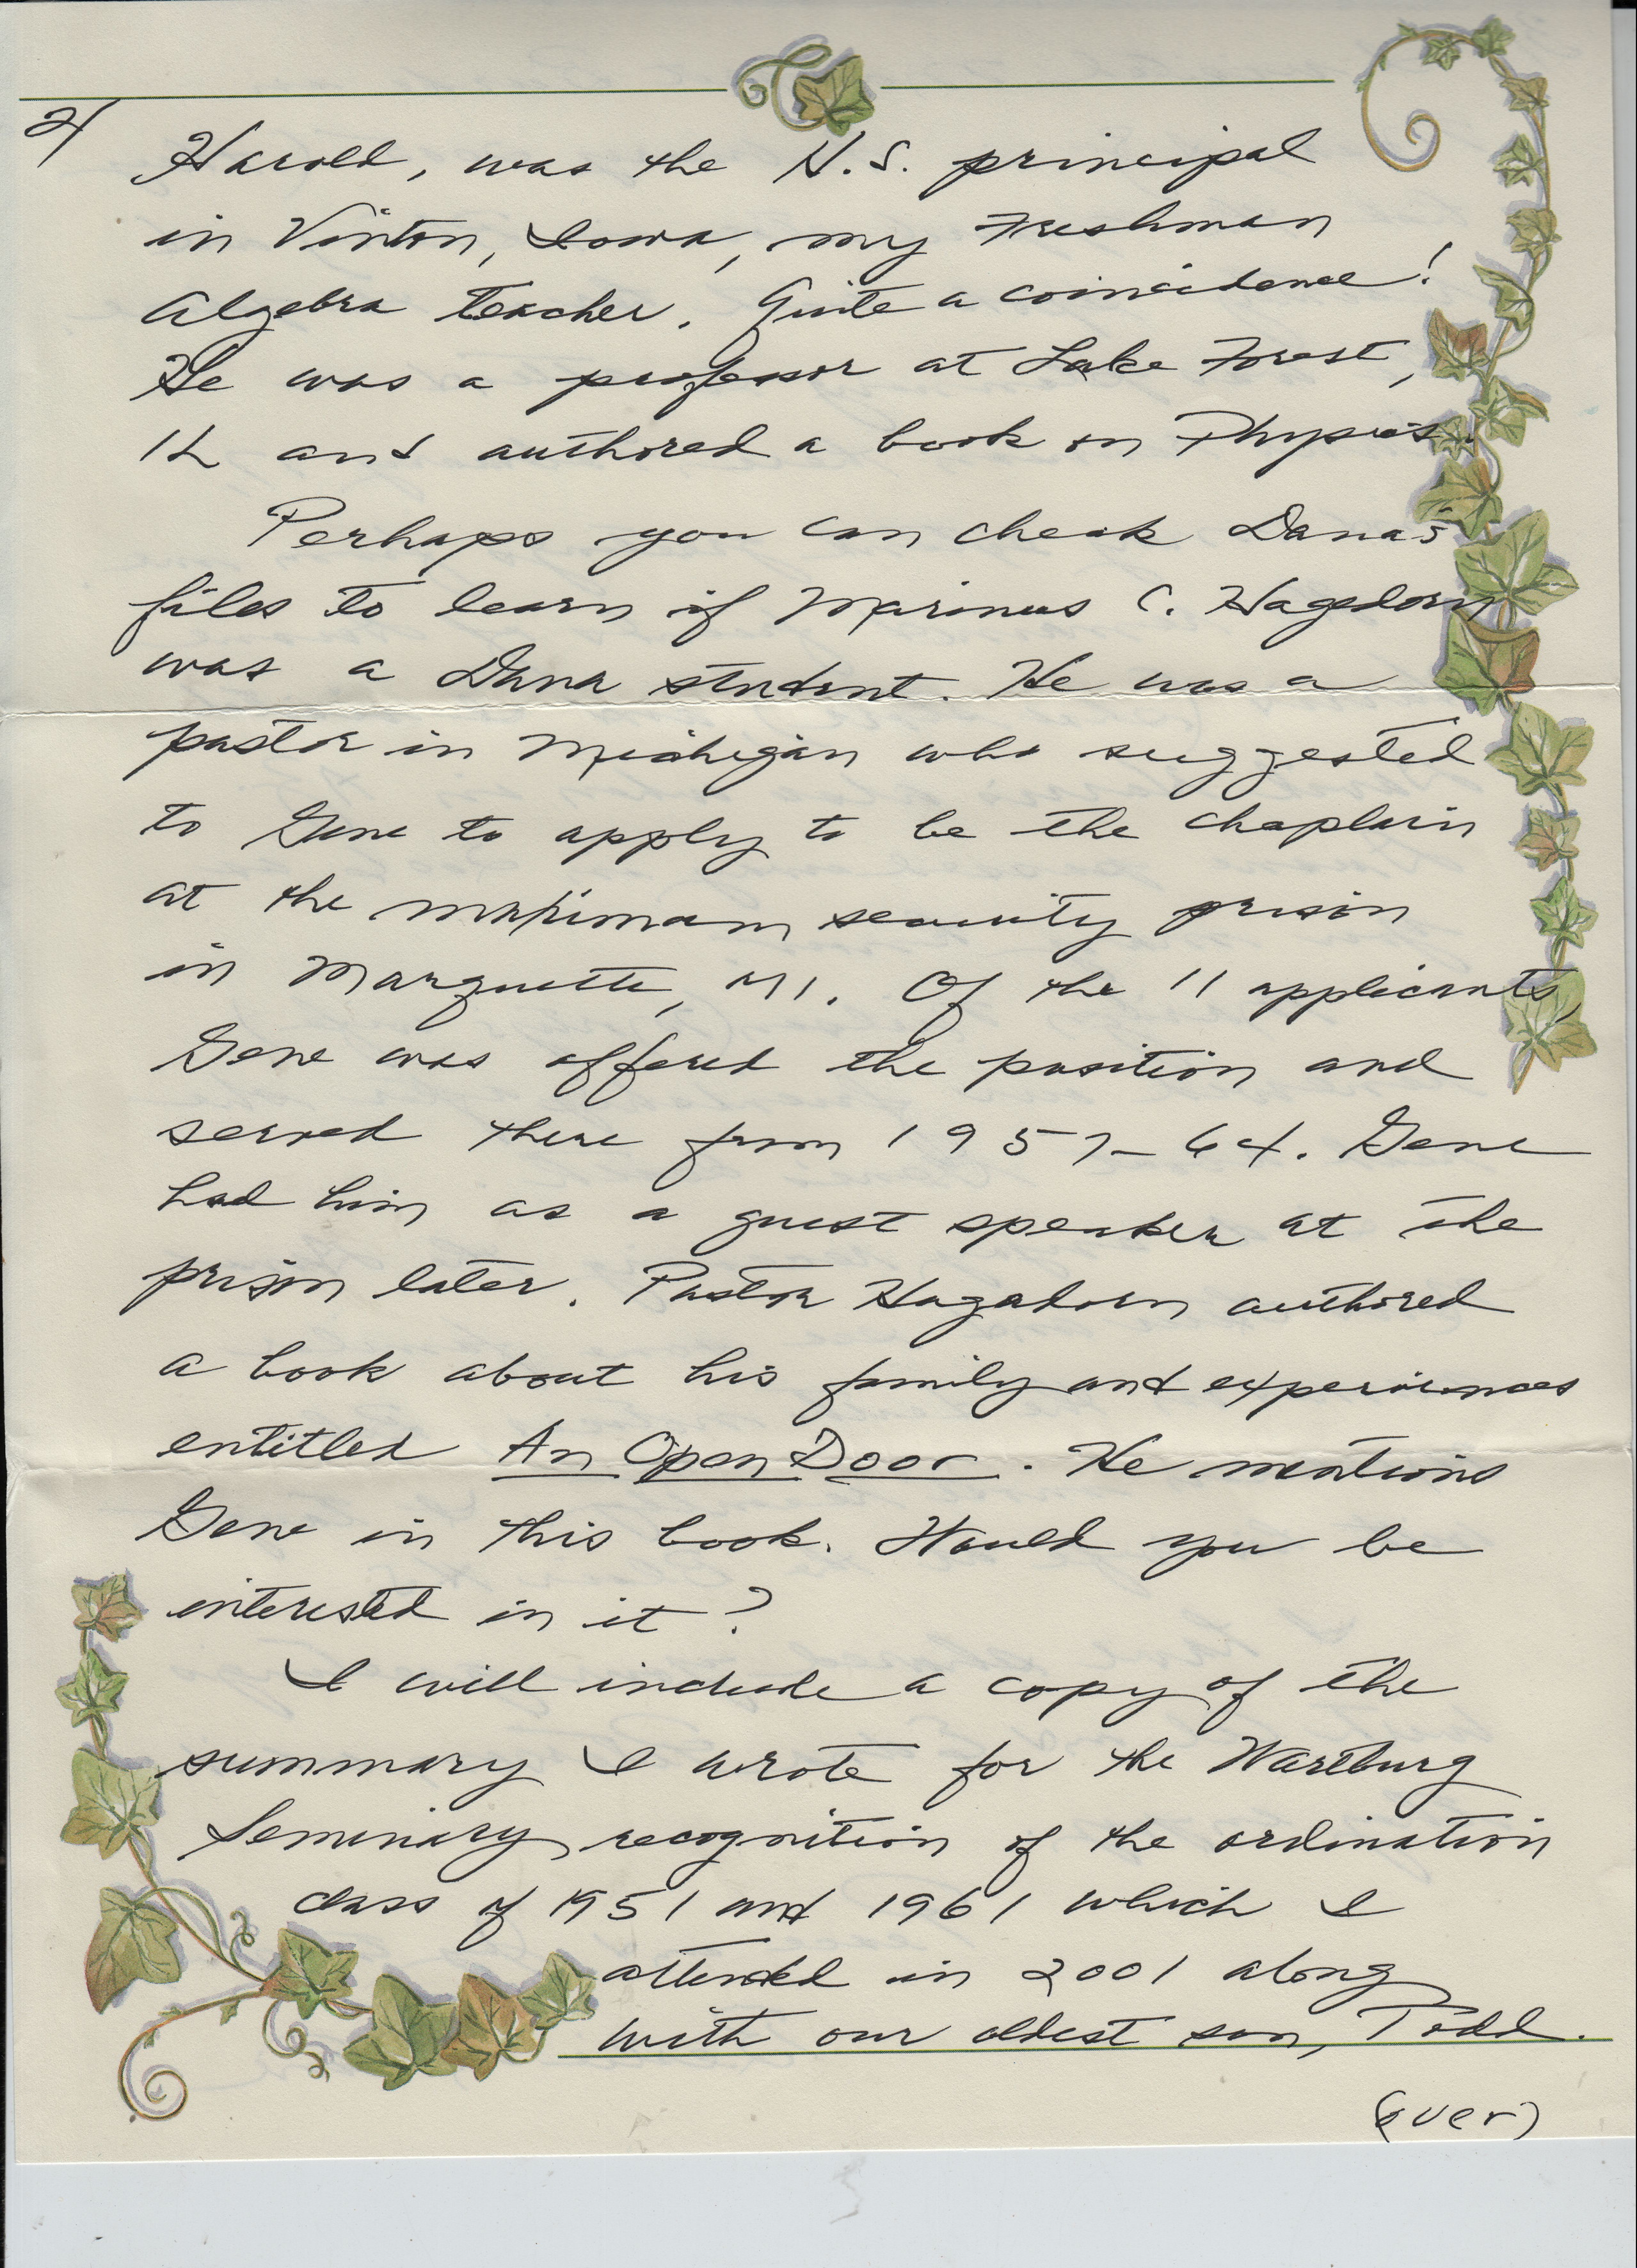 2/
Harold, was the H.S. principal
in Vinton, Iowa, my Freshman
Algebra teacher. Quite a coincidence!
He was a professor at Lake Forest,
IL and authored a book on Physics.
Perhaps you can check Dana's
files to learn if Marinus C. Hagedorn
was a Dana student. He was a
pastor in Michigan who suggested
to Gene to apply to be the chaplain
at the maximum security prison
in Marquette, MI. Of the 11 applicants,
Gene was offered the position and
served there from 1957-64. Gene
had him as a guest speaker at the
prison later. Pastor Hagadorn authored
a book about his family and experiences
entitled An Open Door. He mentions
Gene in this book. Would you be
interested in it?
I will include a copy of the
summary I wrote for the Wartburg
Seminary recognition of the ordination
class of 1951 and 1961 which I
attended in 2001 along
with our oldest son, Todd.
(over)